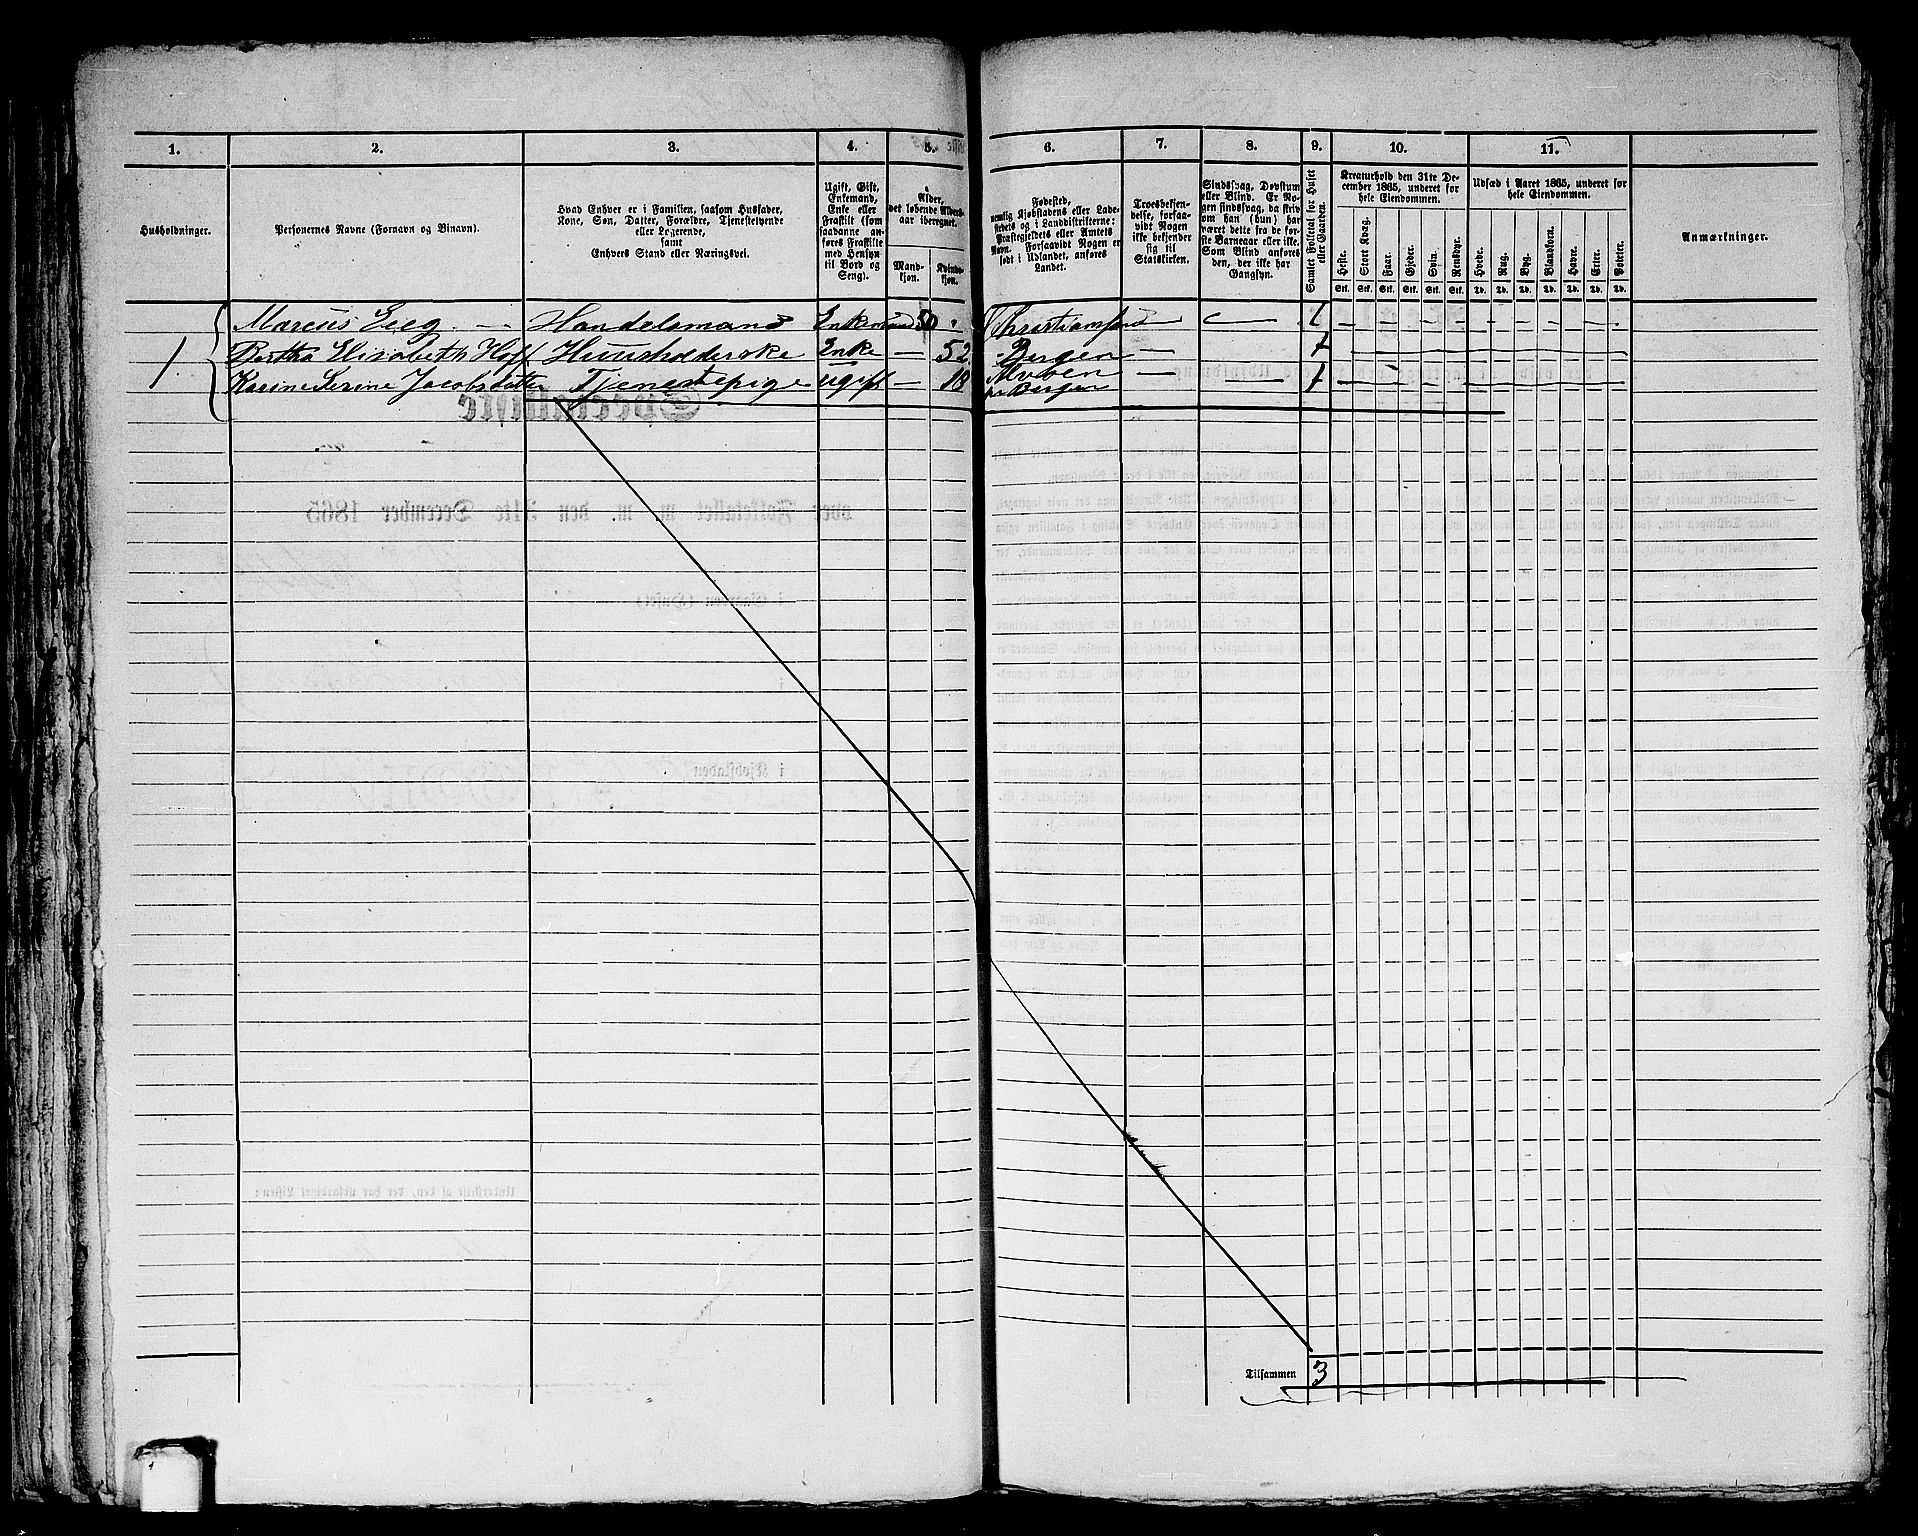 1. 2. 3. 4. 5. 6. 7. 8. 9. 10. 11.
Husholdninger.
Personernes Navne (Fornavn og Binavn).
Hvad Enhver er i Familien, saasom Husfader,
Kone, Søn, Datter, Forældre, Tjenestetyende
eller Logerende,
samt
Enhvers Stand eller Næringsvei.
Ugift, Gift,
Enkemand,
Enke eller
Fraskilt (som
saadanne an-
føres Fraskilte
med Hensyn
til Bord og
Seng).
Alder,
det løbende Alders-
aar iberegnet.
Mand-
kjøn.
Kvinde-
kjøn.
Fødested,
nemlig Kjøbstadens eller Lade-
stedets og i Landdistrikterne:
Præstegjeldets eller Amtets
Navn. Forsaavidt Nogen er
født i Udlandet, anføres
Landet.
Troesbekjen-
delse, forsaa-
vidt Nogen
ikke bekjender
sig til
Statskirken.
Sindssvag, Døvstum
eller Blind. Er No-
gen sindssvag, da skriv
om han (hun) har
været dette fra de før-
ste Barneaar eller ikke.
Som Blind anføres
den, der ikke har
Gangsyn.
Samlet Folketal for Huset
eller Gaarden.
Kreaturhold den 31te De-
cember 1865, underet for
hele Eiendommen.
Heste. Stort Kvæg. Faar. Gjeder. Svin. Rensdyr.
Stk. Stk. Stk. Stk. Stk. Stk.
Udsæd i Aaret 1865, underet for
hele Eiendommen.
Hvede. Rug. Byg. Blandkorn. Havre. Erter. Poteter.
Td. Td. Td. Td. Td. Td. Td.
Anmærkninger.
Marcus Eieg — Handelsmand Enkemand 50 Christiansund — 1
1. Bertha Elisabeth Hoff Huusholderske Enke — 52 Bergen — 1
Karine Serine Jacobsdatter Tjenestepige ugift — 18 Alvøen — — 1
Bergen
Tilsammen 3